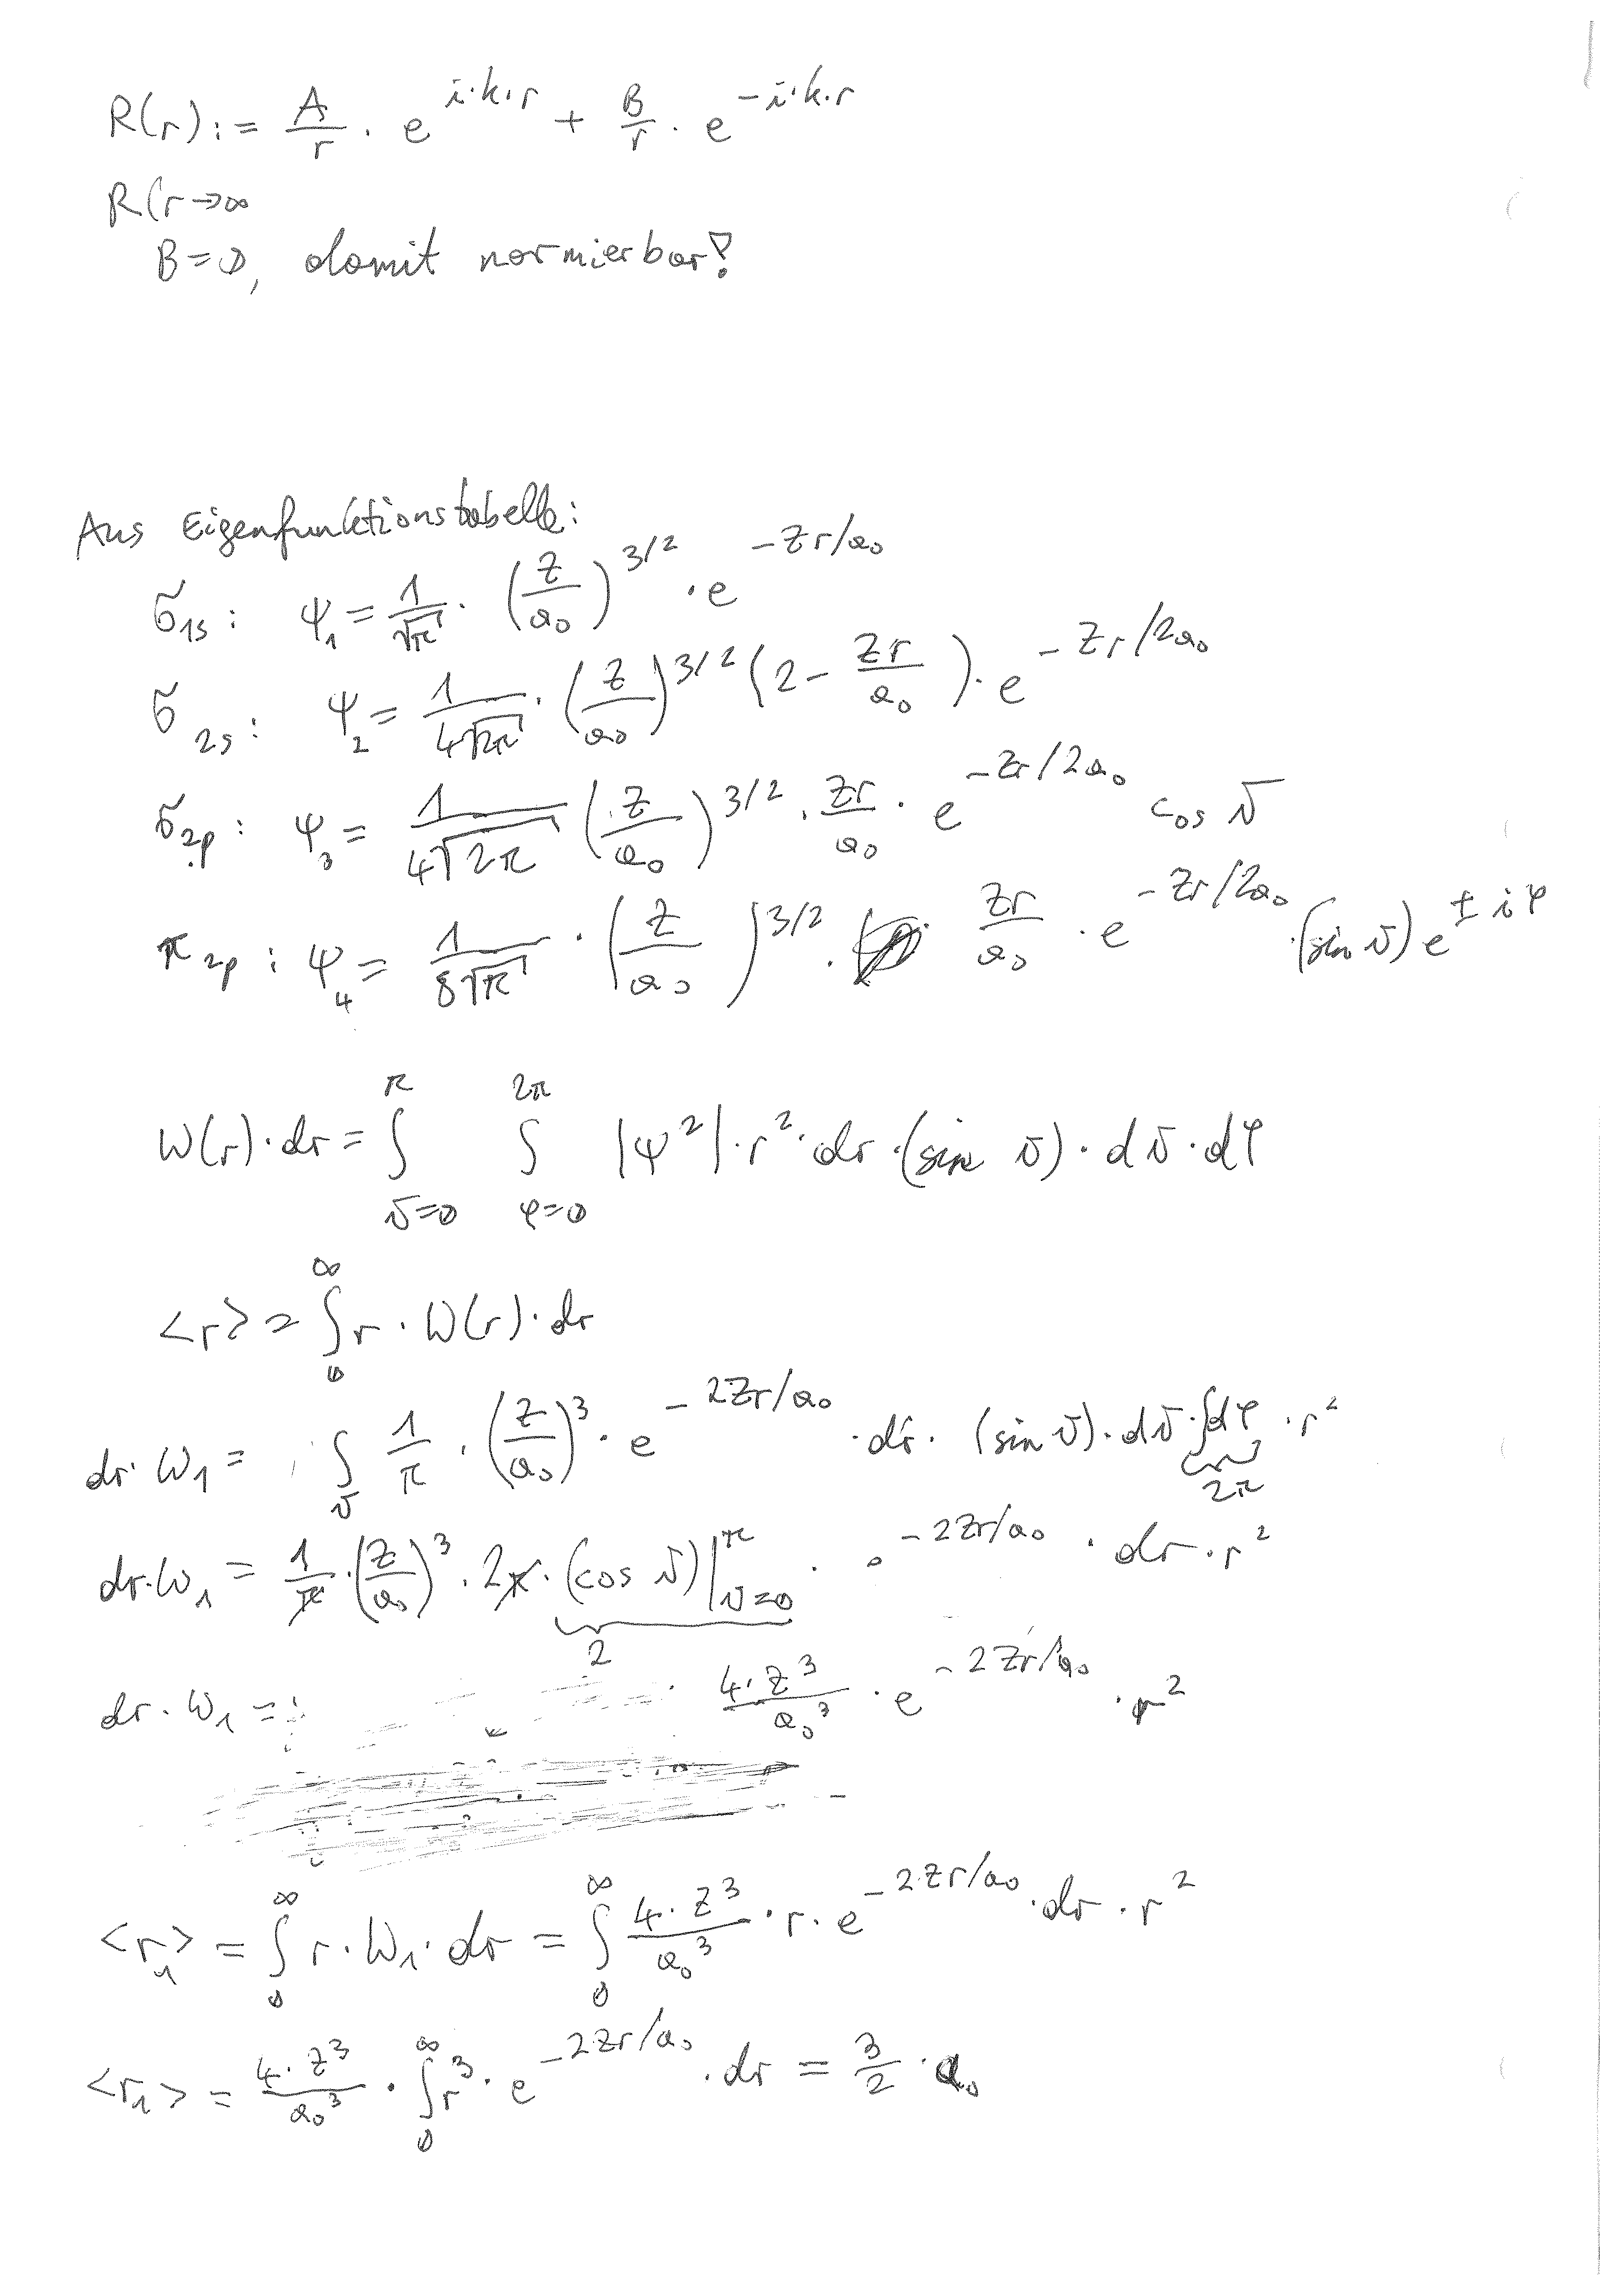 R(r) := A/r · e^(i·k·r) + B/r · e^(-i·k·r)
R(r→∞
B=0, damit normierbar?
Aus Eigenfunktionstabelle:
σ1s: ψ₁ = 1/√π · (Z/a₀)^(3/2) · e^(-Zr/a₀)
σ2s: ψ₂ = 1/(4√(2π)) · (Z/a₀)^(3/2) (2 - Zr/a₀) · e^(-Zr/2a₀)
σ2p: ψ₃ = 1/(4√(2π)) (Z/a₀)^(3/2) · Zr/a₀ · e^(-Zr/2a₀) cos ϑ
π2p: ψ₄ = 1/(8√π) · (Z/a₀)^(3/2) · Zr/a₀ · e^(-Zr/2a₀) · (sin ϑ) e^(±iφ)
W(r)·dr = ∫_(ϑ=0)^π ∫_(φ=0)^(2π) |ψ²|·r²·dr·(sin ϑ)·dϑ·dφ
<r> = ∫_0^∞ r·W(r)·dr
dr·W₁ = ∫_ϑ 1/π · (Z/a₀)³ · e^(-2Zr/a₀) · dr · (sin ϑ)·dϑ·∫dφ · r²
2π
dr·W₁ = 1/π · (Z/a₀)³ · 2π · (cos ϑ)|_(ϑ=0)^π · e^(-2Zr/a₀) · dr · r²
2
dr·W₁ = 4·Z³/a₀³ · e^(-2Zr/a₀) · r²
<r₁> = ∫_0^∞ r·W₁·dr = ∫_0^∞ 4·Z³/a₀³ · r · e^(-2Zr/a₀) · dr · r²
<r₁> = 4·Z³/a₀³ · ∫_0^∞ r³ · e^(-2Zr/a₀) · dr = 3/2 · a₀